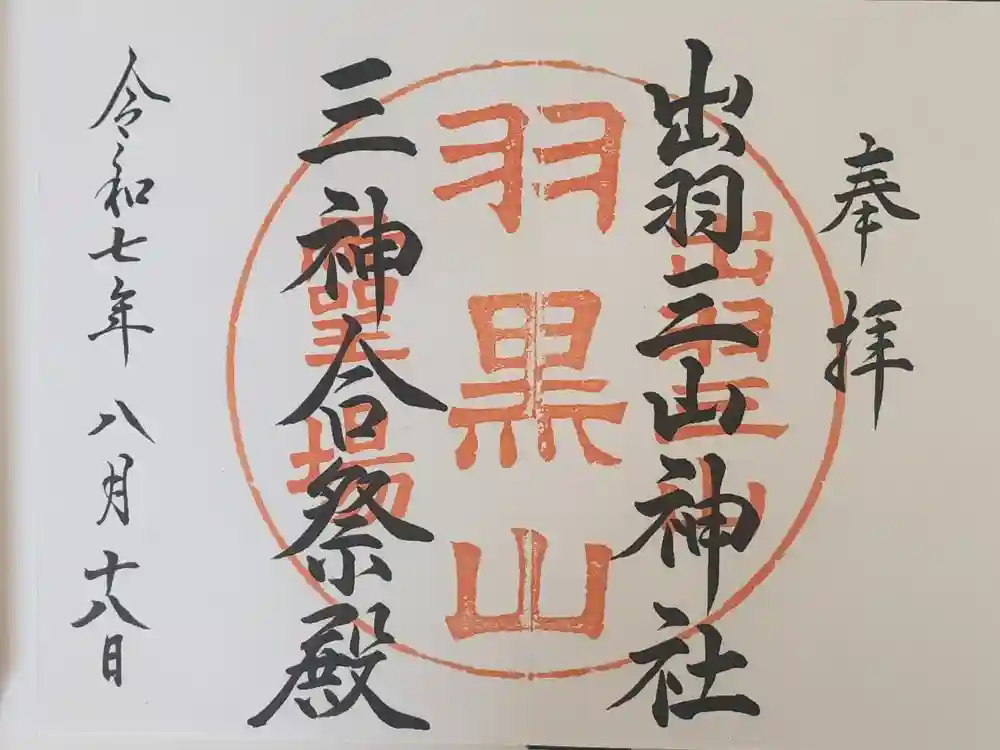 奉拝
出羽三山神社
三神合祭殿
令和七年 八月十八日
出羽三山
羽黒山
霊場